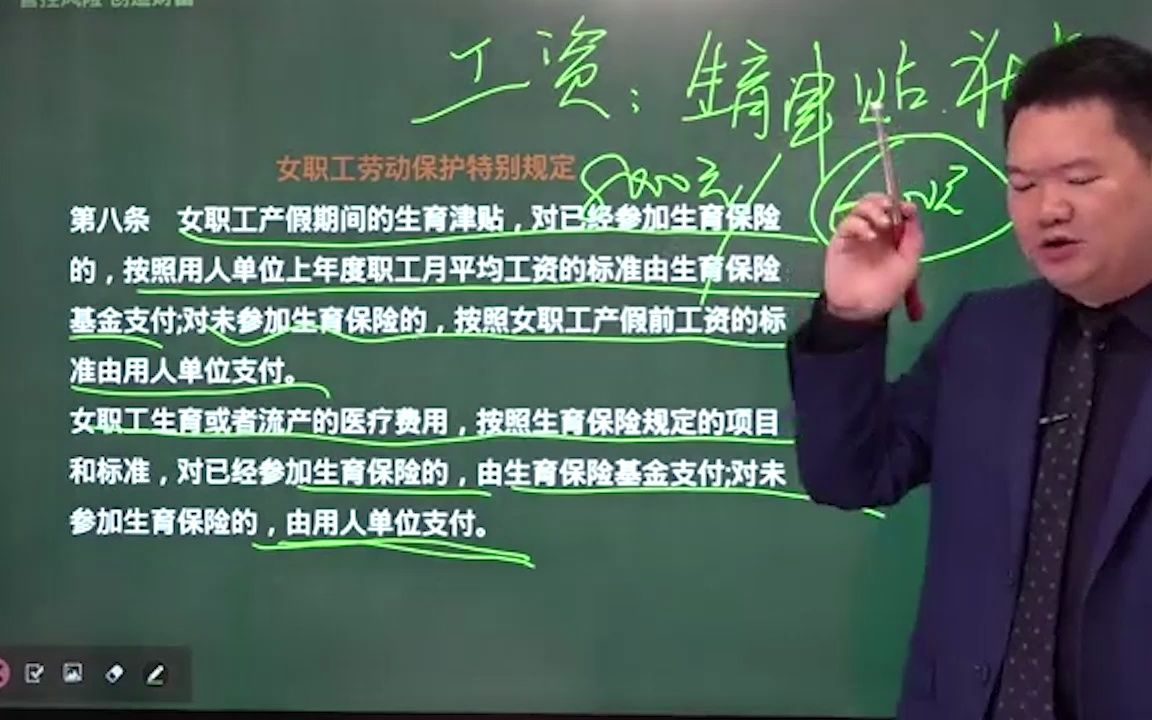 管控风险 创造财富
工资：生育津贴
女职工劳动保护特别规定
8000元
第八条 女职工产假期间的生育津贴，对已经参加生育保险
的，按照用人单位上年度职工月平均工资的标准由生育保险
基金支付;对未参加生育保险的，按照女职工产假前工资的标
准由用人单位支付。
女职工生育或者流产的医疗费用，按照生育保险规定的项目
和标准，对已经参加生育保险的，由生育保险基金支付;对未
参加生育保险的，由用人单位支付。